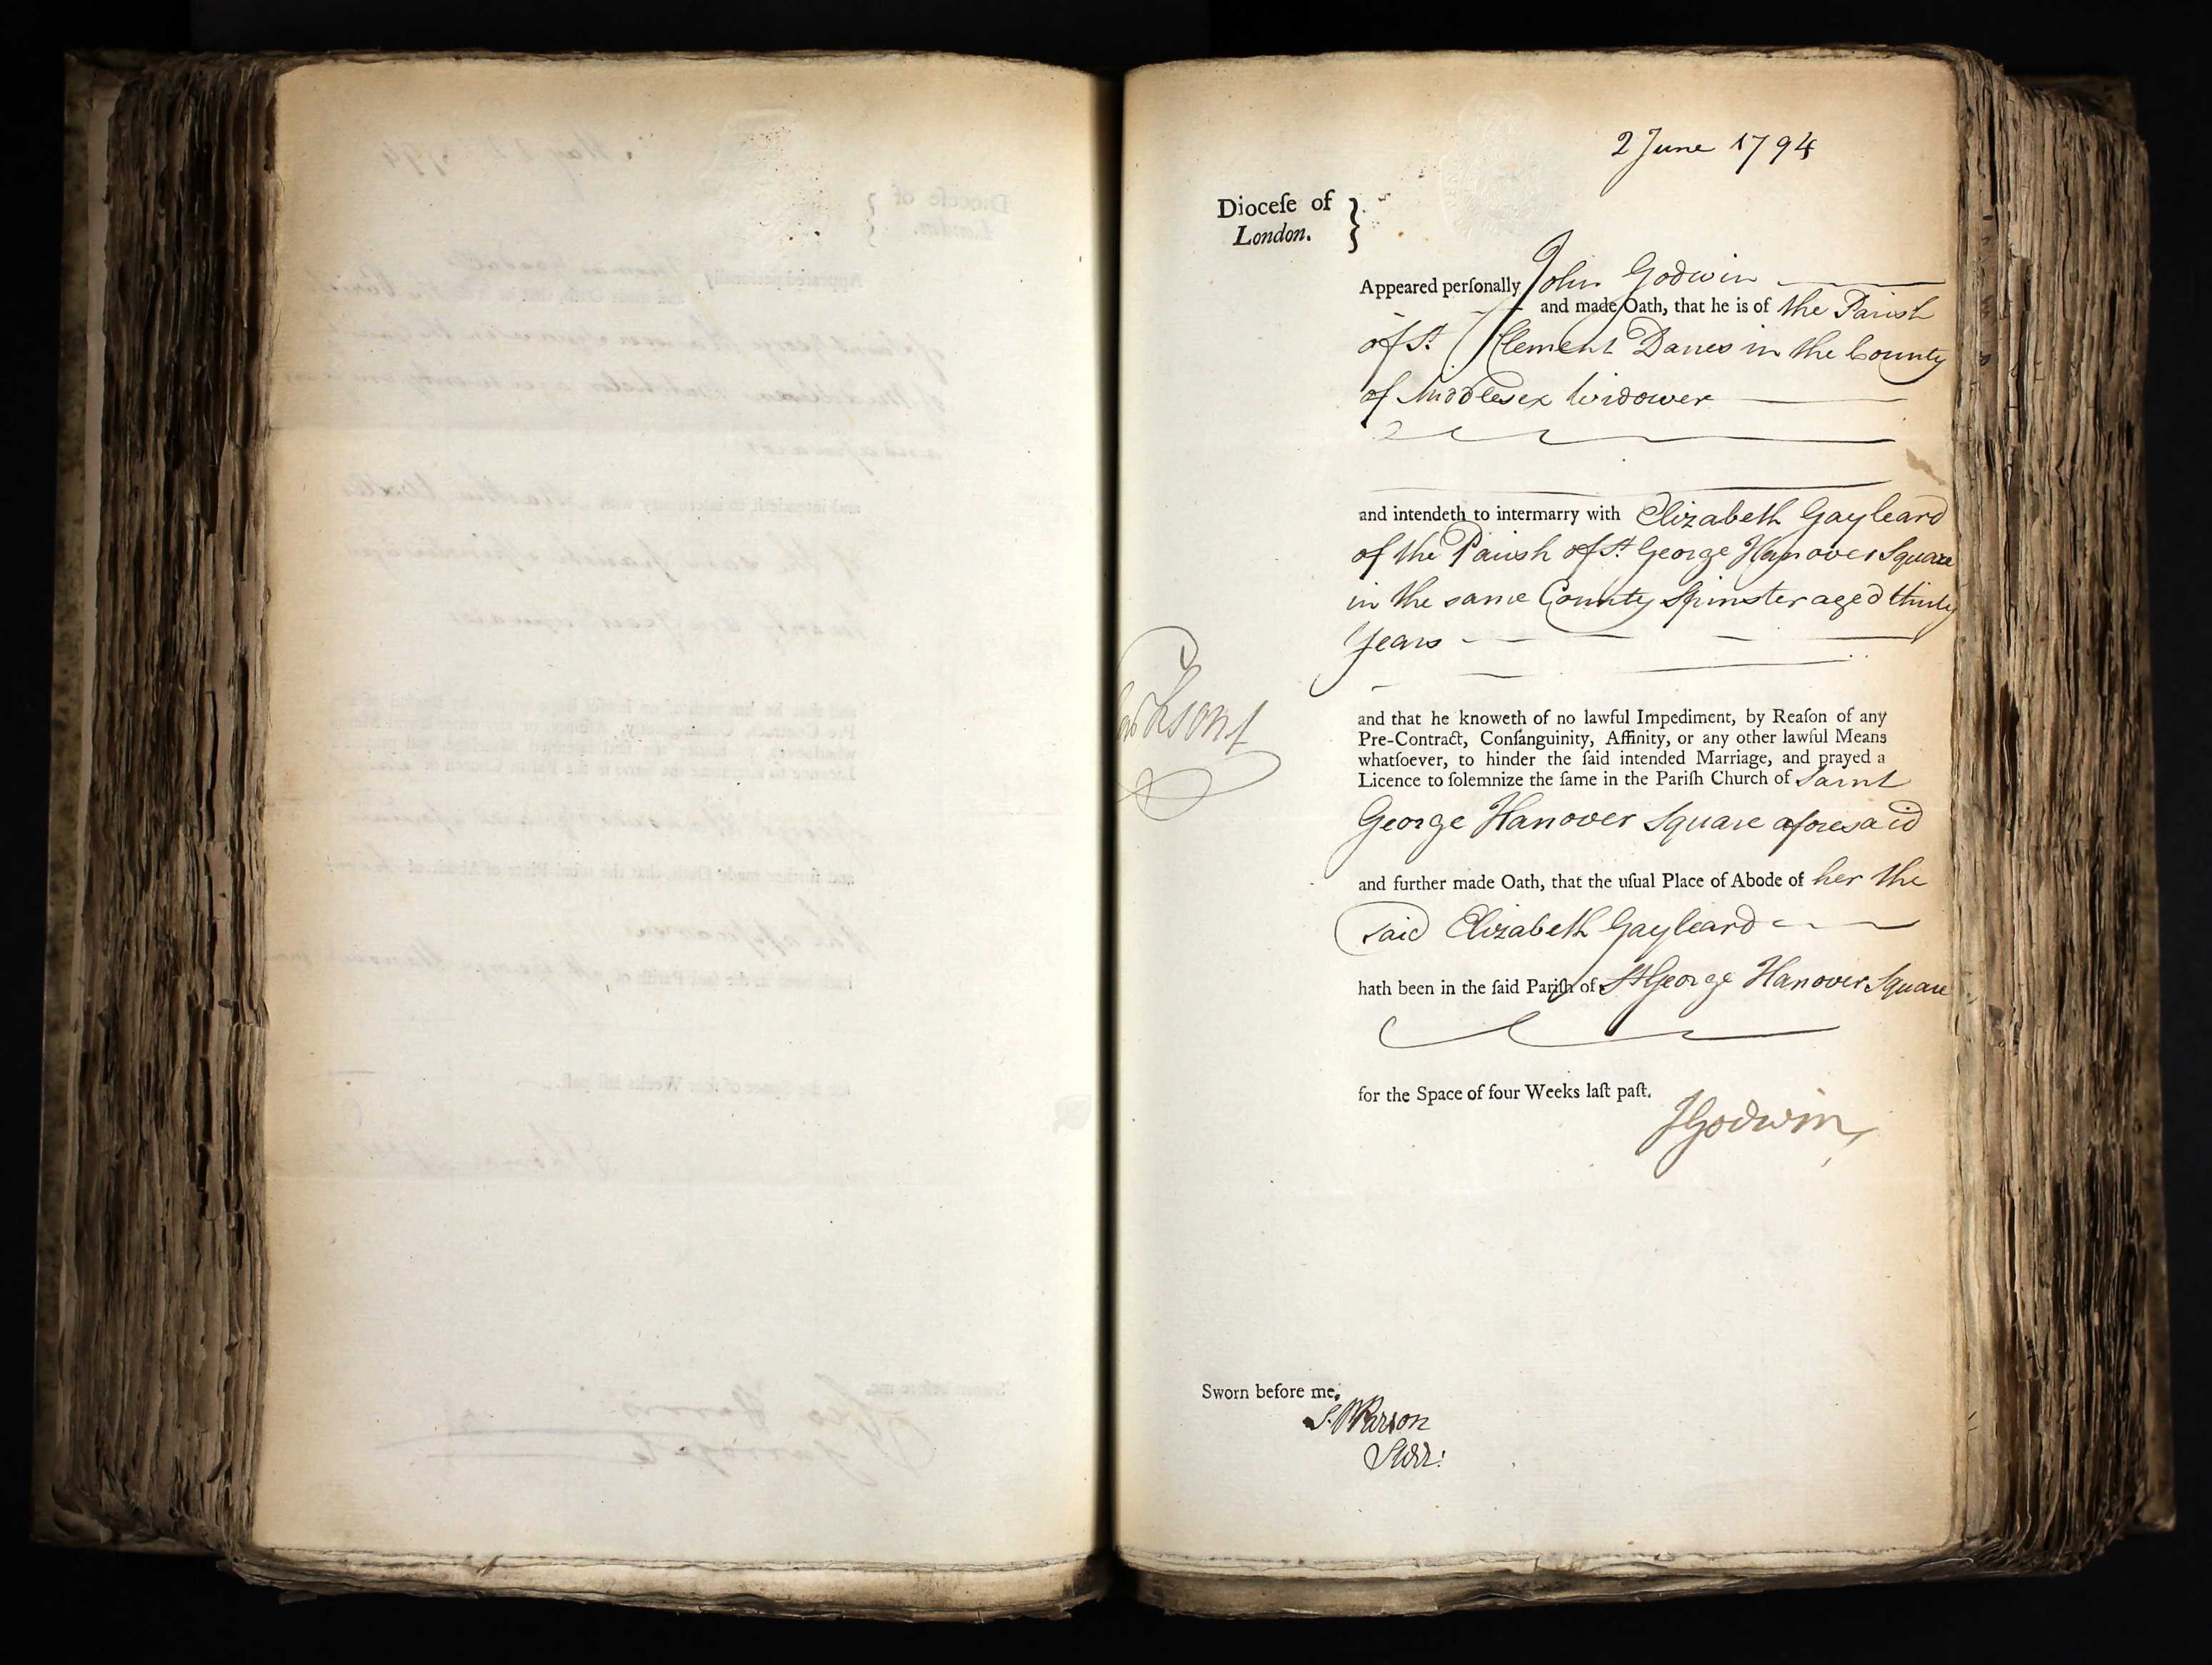 2 June 1794
Dioceſe of
London.
Appeared perſonally John Godwin
and made Oath, that he is of the Parish
of St. Clement Danes in the County
of Middlesex Widower
and intendeth to intermarry with Elizabeth Gayleard
of the Parish of St. George Hanover Square
in the same County Spinster aged thirty
Years
and that he knoweth of no lawful Impediment, by Reaſon of any
Pre-Contract, Conſanguinity, Affinity, or any other lawful Means
whatſoever, to hinder the ſaid intended Marriage, and prayed a
Licence to ſolemnize the ſame in the Pariſh Church of Saint
George Hanover Square aforesaid
and further made Oath, that the uſual Place of Abode of her the
said Elizabeth Gayleard
hath been in the ſaid Pariſh of St George Hanover Square
for the Space of four Weeks laſt paſt.
JGodwin
Sworn before me,
Parson
Surr: